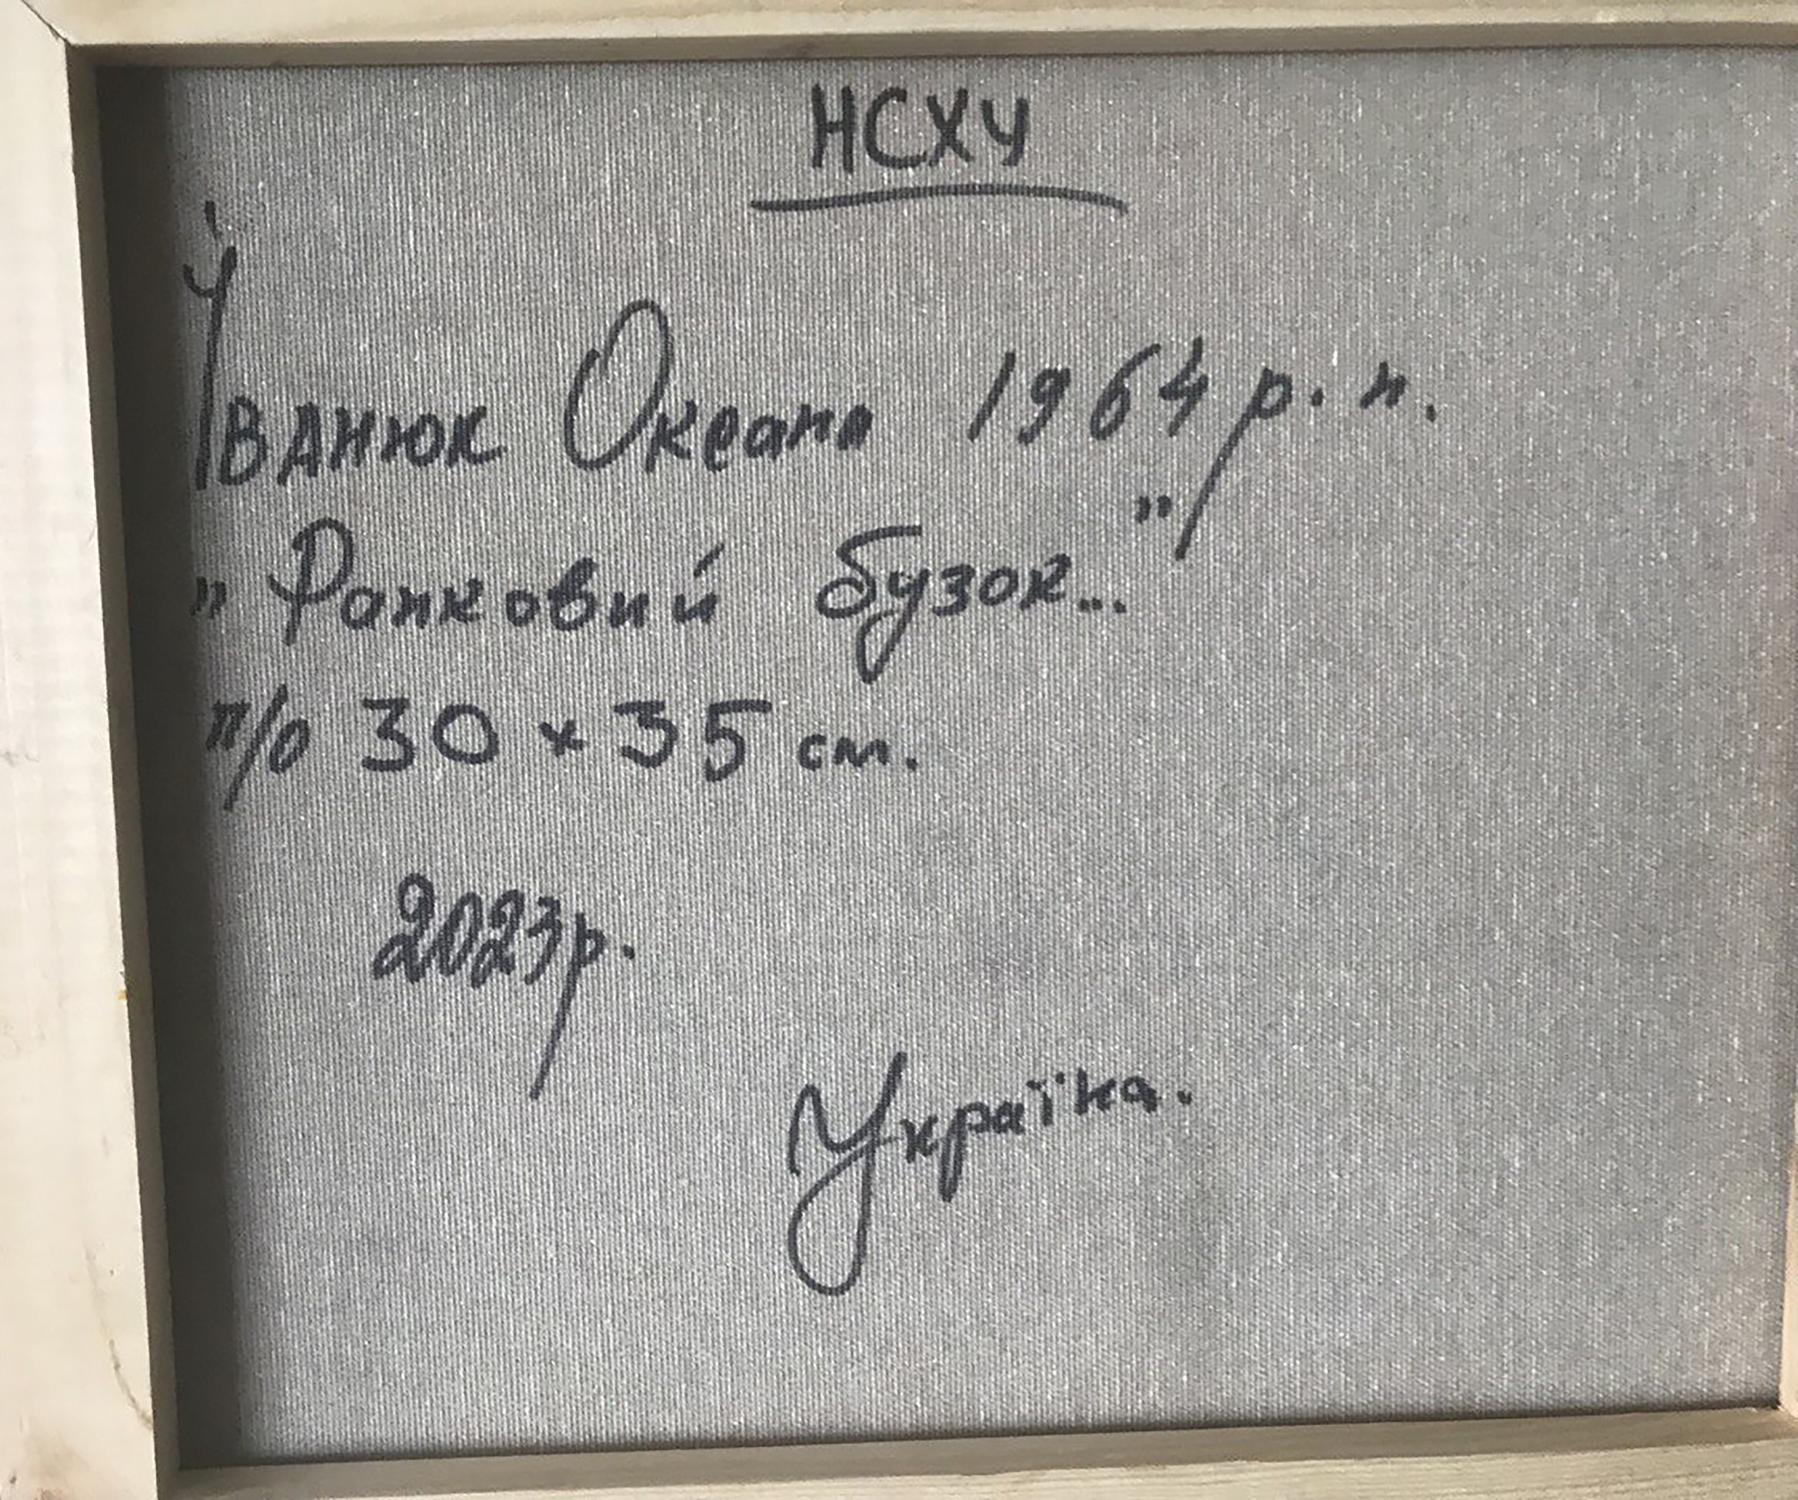 НСХУ
Іванюк Оксана 1964 р. н.
„Ранковий бузок..."
п/о 30 × 35 см.
2023р.
Україна.